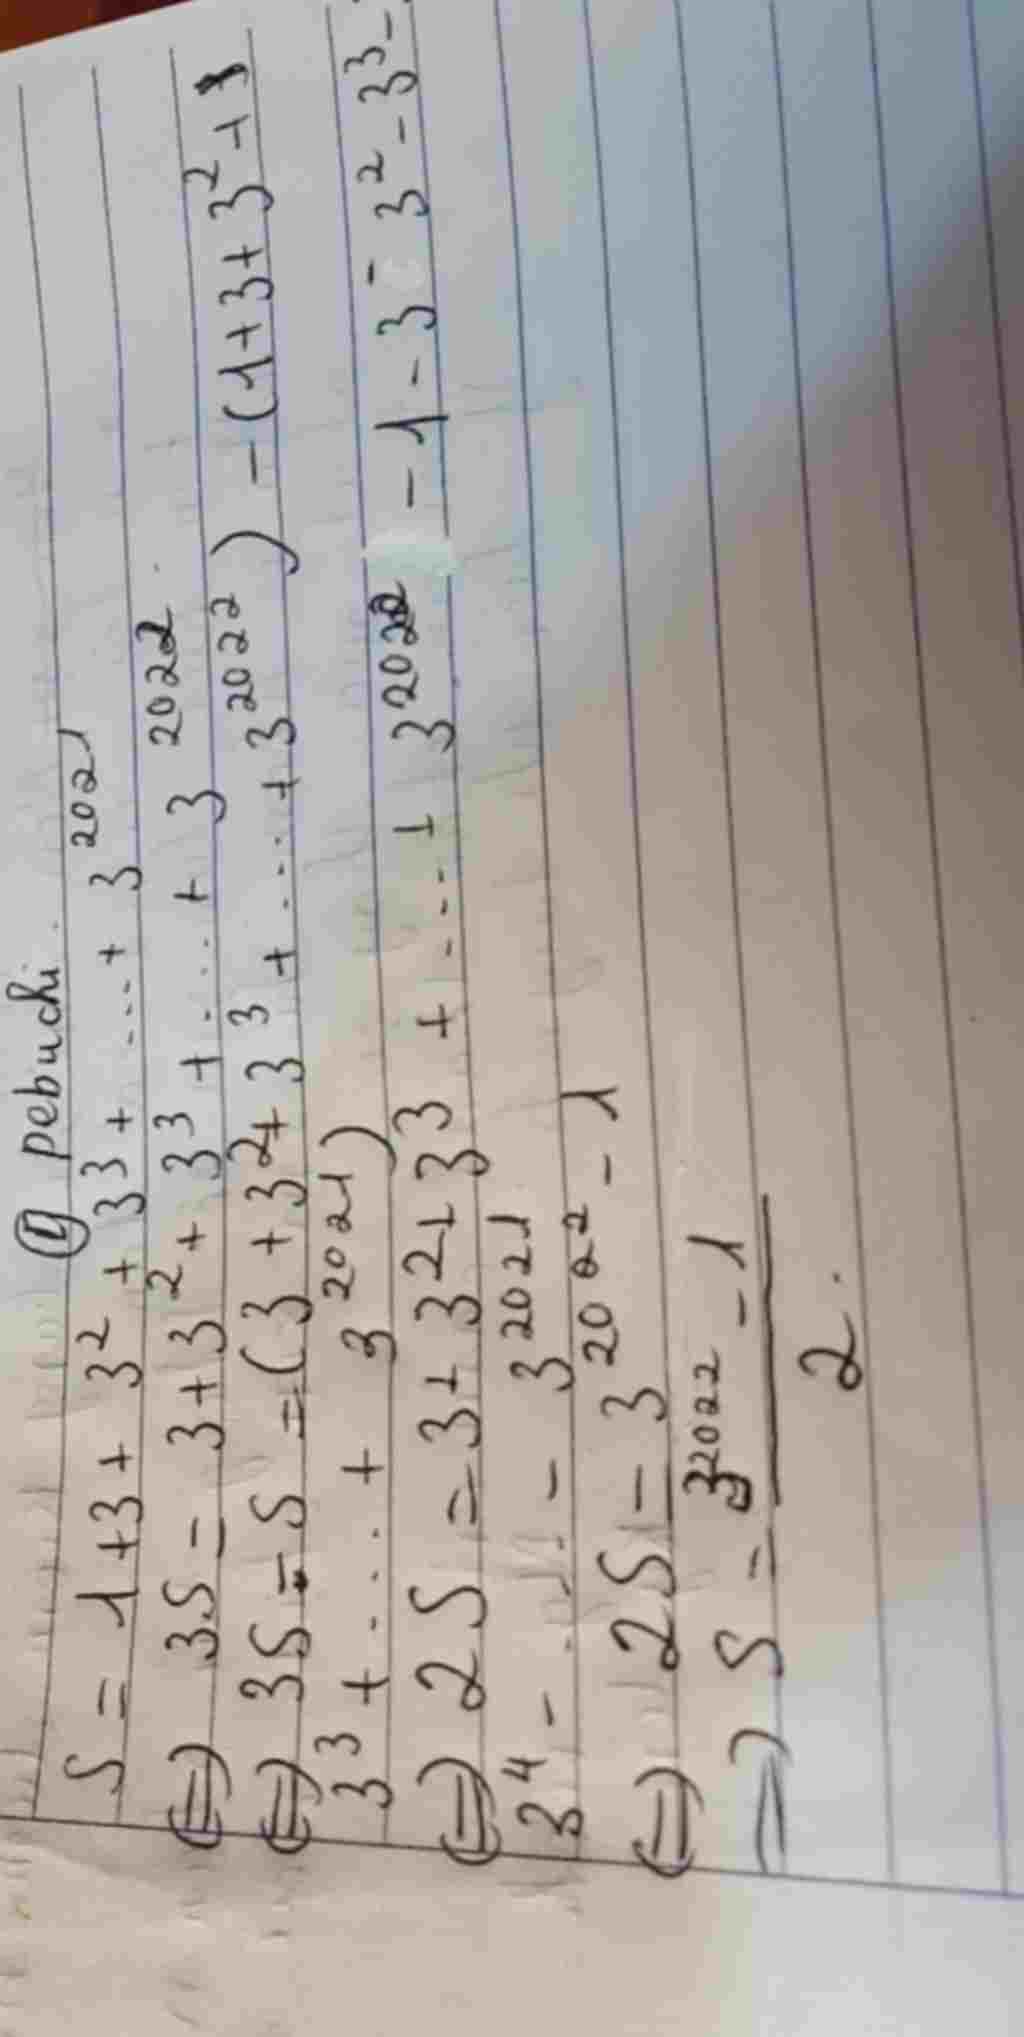 ① pebuchi.
S = 1 + 3 + 3² + 3³ + .... + 3²⁰²¹
⇔ 3S = 3 + 3² + 3³ + .... + 3²⁰²².
⇔ 3S - S = (3 + 3² + 3³ + .... + 3²⁰²²) - (1 + 3 + 3² +
3³ + .... + 3²⁰²¹)
⇔ 2S = 3 + 3² + 3³ + .... + 3²⁰²² - 1 - 3 - 3² - 3³ -
3⁴ - .... - 3²⁰²¹
⇔ 2S = 3²⁰²² - 1
⇒ S = (3²⁰²² - 1) / 2.